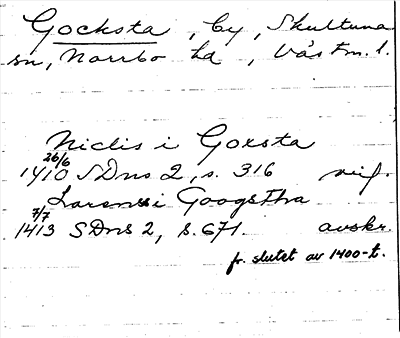 Gocksta, by, Skultuna
sn, Norrbo hd, Västm. l.
Niclis i Goxsta
26/6
1410 SDns 2, s. 316 avs.
Larenss i Googstha
7/7
1413 SDns 2, s. 671. avskr.
fr. slutet av 1400-t.